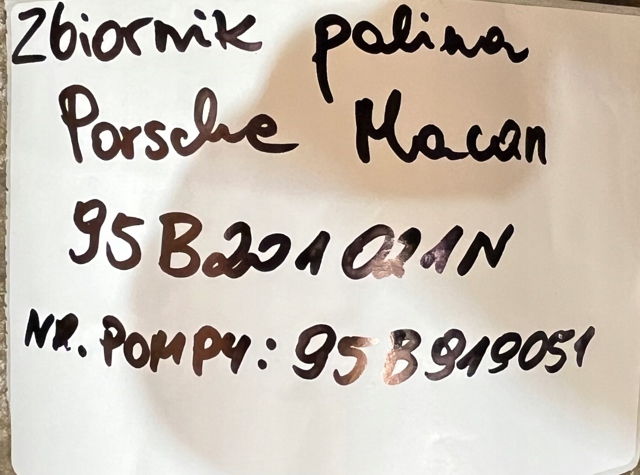 Zbiornik paliwa
Porsche Macan
95B201021N
NR. POMPY: 95B919051